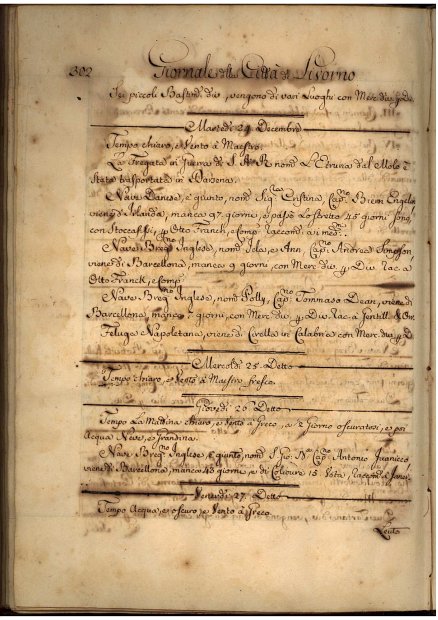 302 Giornale della Città di Livorno
Sei piccoli Bastim.ti div. vengono di vari Luoghi con Merc. div. p
Martedì 24. Decembre
Tempo chiaro, e Vento à Maestro.
La Fregata in guerra di S. A. R. nom. L'Etruria dal Molo è
Stata trasportata in Darsena.
Nave Danese, è giunto, nom. Sig.ra Cristina, Cap.no
viene d'Irlanda, manca 97. giorni, e passò Lo stretto 45 giorni sono,
con Stoccafissi, p Otto Franck, e Comp. racc. a i med.
Nave Brig.no Inglese, nom. Isla, e Ann, Cap.no Andrea Simpson,
viene di Barcellona, manca 9 giorni, con Merc. div. p Div. Rac. a
Otto Franck, e Comp.
Nave Brig.no Inglese, nom. Polly, Cap.no Tommaso Dean, viene di
Barcellona, manca 7 giorni, con Merc. div. p Div. Rac. a
Feluga Napoletana, viene di Cirella in Calabria con Merc. div. p D.
Mercoldì 25. Detto
Tempo chiaro, e Vento à Maestro fresco.
Giovedì 26. Detto
Tempo La Mattina chiaro, e Vento à Greco, a 2 Giorno oscuratosi, e poi
Acqua Neve, e Grandina.
Nave Brig.no Inglese, è giunto, nom. S. Gio: N.a Cap.no Antonio
viene di Barcellona, manca 43 giorni, e di 15.
Venerdì 27. Detto
Tempo Acqua, e oscuro, e Vento à Greco.
Leuto